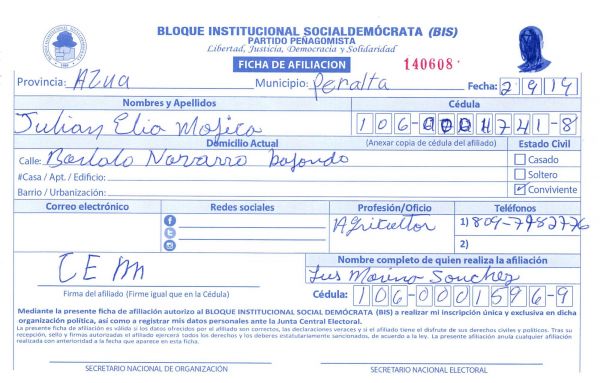 BLOQUE INSTITUCIONAL SOCIALDEMÓCRATA (BIS)
PARTIDO PEÑAGOMISTA
Libertad, Justicia, Democracia y Solidaridad
FICHA DE AFILIACION 140608
Provincia: Azua Municipio: Peralta Fecha: 2 9 14
Nombres y Apellidos Cédula
Julian Elia Mojica 106- 741-8
Domicilio Actual (Anexar copia de cédula del afiliado) Estado Civil
Calle: Navarro Casado
#Casa / Apt. / Edificio: Soltero
Barrio / Urbanización: Conviviente
Correo electrónico Redes sociales Profesión/Oficio Teléfonos
Agricultor 1) 809-7982776
2)
JEM Nombre completo de quien realiza la afiliación
Luis Moreno Sanchez
Firma del afiliado (Firme igual que en la Cédula) Cédula: 106-0001596-9
Mediante la presente ficha de afiliación autorizo al BLOQUE INSTITUCIONAL SOCIAL DEMÓCRATA (BIS) a realizar mi inscripción única y exclusiva en dicha
organización política, así como a registrar mis datos personales ante la Junta Central Electoral.
La presente ficha de afiliación es válida si los datos ofrecidos por el afiliado son correctos, las declaraciones veraces y si el afiliado tiene el disfrute de sus derechos civiles y políticos. Tras su
recepción, sello y firmas autorizadas el afiliado ejercerá todos los derechos y los deberes estatutariamente sancionados, de acuerdo a la ley. La presente afiliación anula cualquier afiliación
realizada con anterioridad a la fecha que aparece en esta ficha.
SECRETARIO NACIONAL DE ORGANIZACIÓN SECRETARIO NACIONAL ELECTORAL